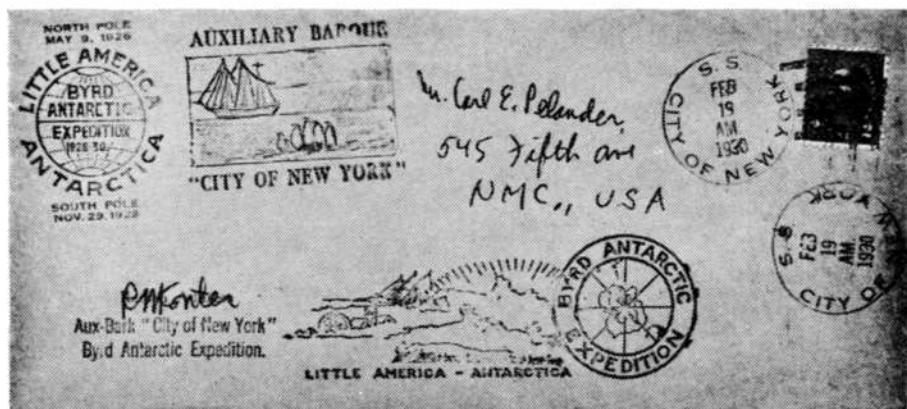 NORTH POLE
MAY 9, 1926
LITTLE AMERICA
BYRD
ANTARCTIC
EXPEDITION
1928-30
ANTARCTICA
SOUTH POLE
NOV. 29, 1929
AUXILIARY BARQUE
"CITY OF NEW YORK"
Mr. Carl E. Pelander,
545 Fifth ave
NMC., USA
S.S.
FEB
19
AM
1930
CITY OF NEW YORK
S.S.
FEB
19
AM.
1930
CITY OF NEW YORK
Aux-Bark "City of New York"
Byrd Antarctic Expedition.
BYRD ANTARCTIC
EXPEDITION
LITTLE AMERICA - ANTARCTICA